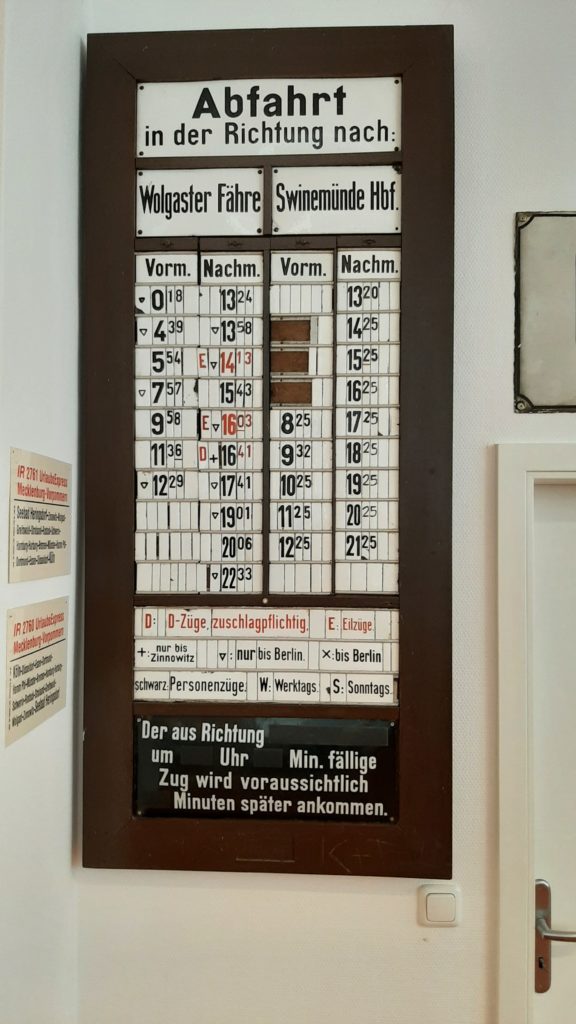 Abfahrt
in der Richtung nach:
Wolgaster Fähre Swinemünde Hbf.
Vorm. Nachm. Vorm. Nachm.
▽ 0 18 13 24 13 20
▽ 4 39 ▽ 13 58 14 25
5 54 E ▽ 14 13 15 25
▽ 7 57 15 43 16 25
9 58 E ▽ 16 03 8 25 17 25
11 36 D + 16 41 9 32 18 25
▽ 12 29 ▽ 17 41 10 25 19 25
▽ 19 01 11 25 20 25
20 06 12 25 21 25
▽ 22 33
D: D-Züge, zuschlagpflichtig. E: Eilzüge.
+: nur bis Zinnowitz ▽: nur bis Berlin. ×: bis Berlin
schwarz: Personenzüge. W: Werktags. S: Sonntags.
Der aus Richtung
um Uhr Min. fällige
Zug wird voraussichtlich
Minuten später ankommen.
IR 2761 UrlaubsExpress
Mecklenburg-Vorpommern
IR 2760 UrlaubsExpress
Mecklenburg-Vorpommern